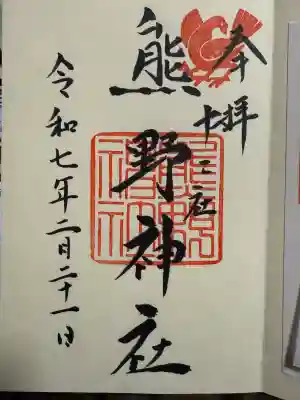 奉拝
十二社
熊野神社
令和七年二月二十一日
熊野神社